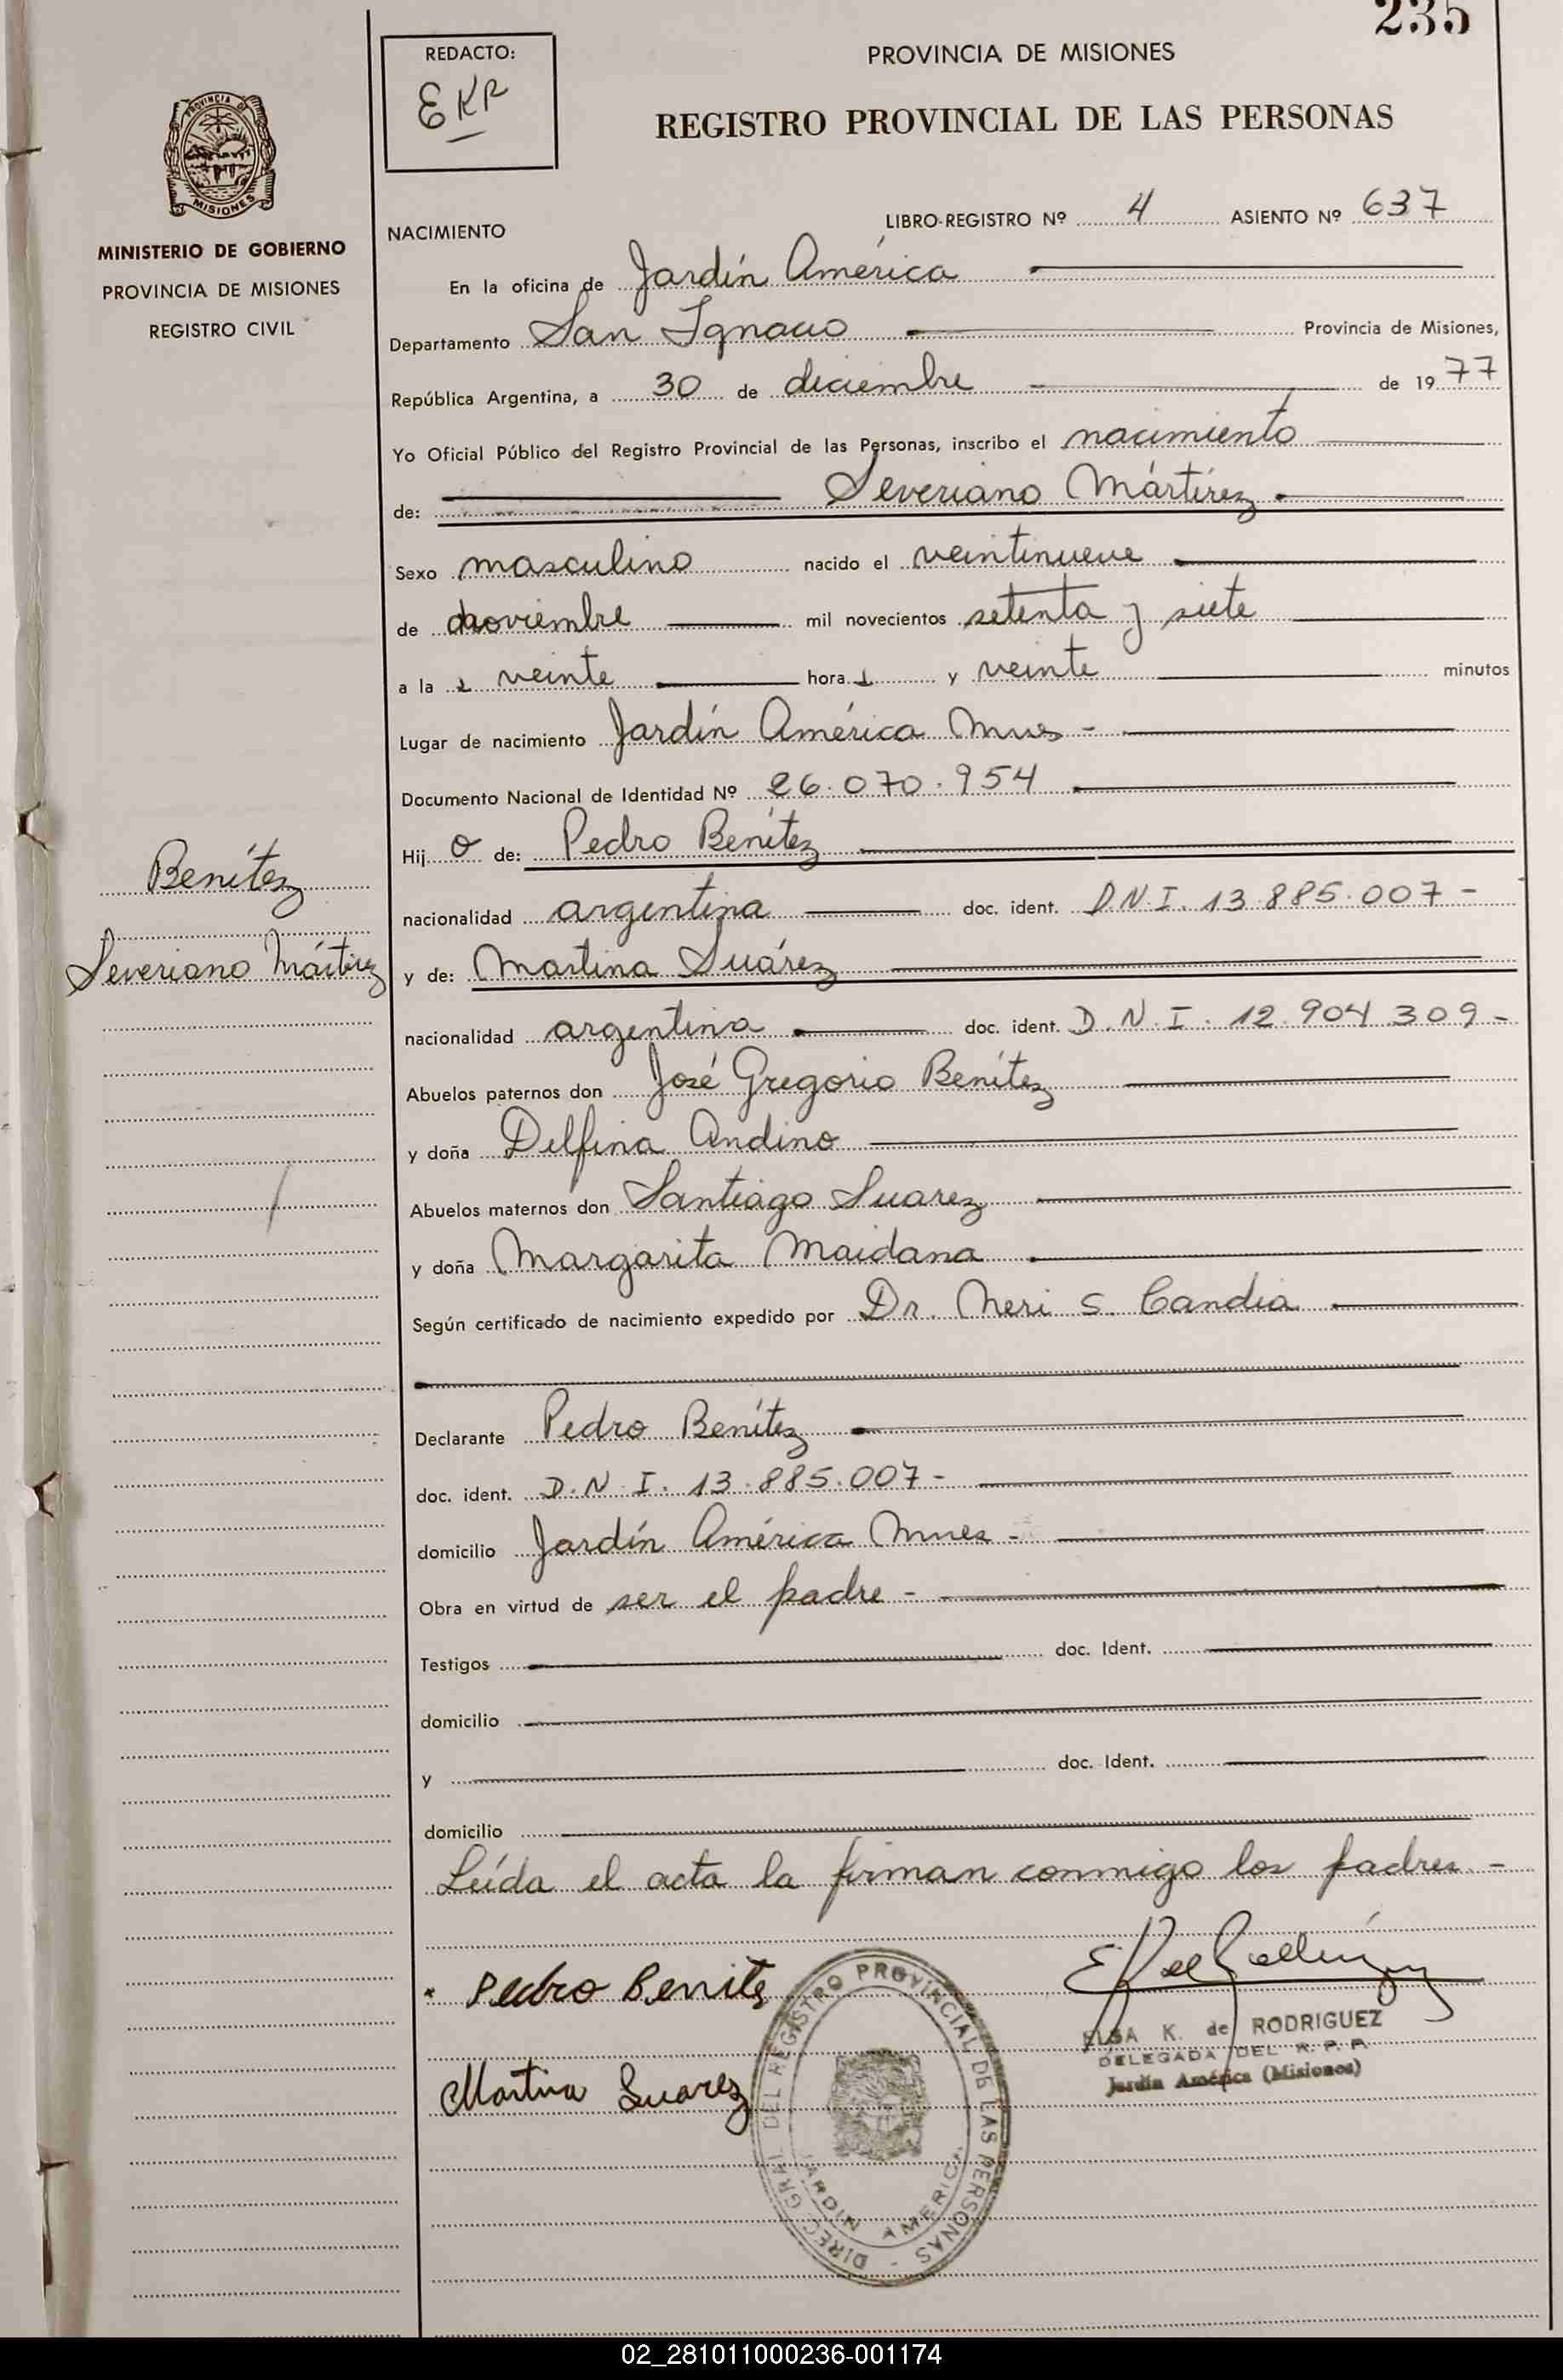 235
REDACTO:
EKR
PROVINCIA DE MISIONES
REGISTRO PROVINCIAL DE LAS PERSONAS
PROVINCIA DE
MISIONES
MINISTERIO DE GOBIERNO
PROVINCIA DE MISIONES
REGISTRO CIVIL
LIBRO-REGISTRO Nº 4 ASIENTO Nº 637
NACIMIENTO
En la oficina de Jardín América
Departamento San Ignacio Provincia de Misiones,
República Argentina, a 30 de diciembre de 1977
Yo Oficial Público del Registro Provincial de las Personas, inscribo el nacimiento
de: Severiano Mártirez
Sexo masculino nacido el veintinueve
de noviembre mil novecientos setenta y siete
a la s veinte hora s y veinte minutos
Lugar de nacimiento Jardín América Mnes -
Documento Nacional de Identidad Nº 26.070.954
Hij o de: Pedro Benítez
Benítez
nacionalidad argentina doc. ident. D.N.I. 13.885.007 -
Severiano Mártirez
y de: Martina Suárez
nacionalidad argentina doc. ident. D.N.I. 12.904.309 -
Abuelos paternos don José Gregorio Benítez
y doña Delfina Andino
Abuelos maternos don Santiago Suarez
y doña Margarita Maidana
Según certificado de nacimiento expedido por Dr. Neri S. Candia
Declarante Pedro Benítez
doc. ident. D.N.I. 13.885.007 -
domicilio Jardín América Mnes -
Obra en virtud de ser el padre -
Testigos doc. Ident.
domicilio
y doc. Ident.
domicilio
Leída el acta la firman conmigo los padres -
Pedro Benitez
Martina Suarez
DIREC. GRAL. DEL REGISTRO PROVINCIAL DE LAS PERSONAS -
JARDIN AMERICA
ELSA K. de RODRIGUEZ
DELEGADA DEL R. P. P.
Jardín América (Misiones)
02_281011000236-001174